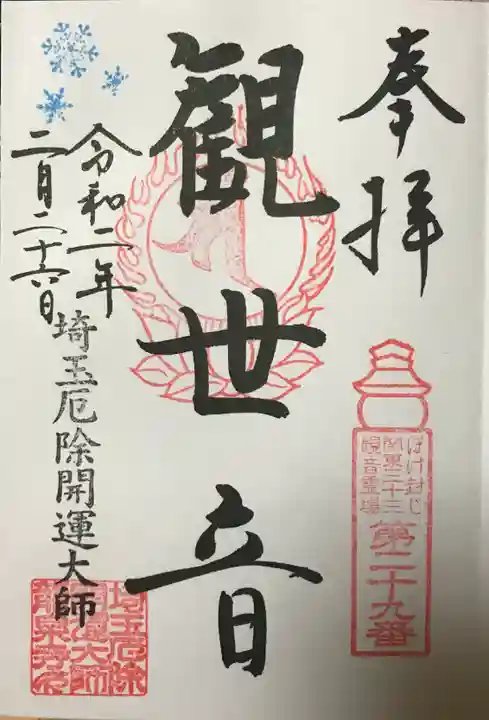 奉拝
ぼけ封じ
関東三十三
観音霊場
第二十九番
観世音
令和二年
二月二十六日
埼玉厄除開運大師
埼玉厄除
開運大師
龍泉寺